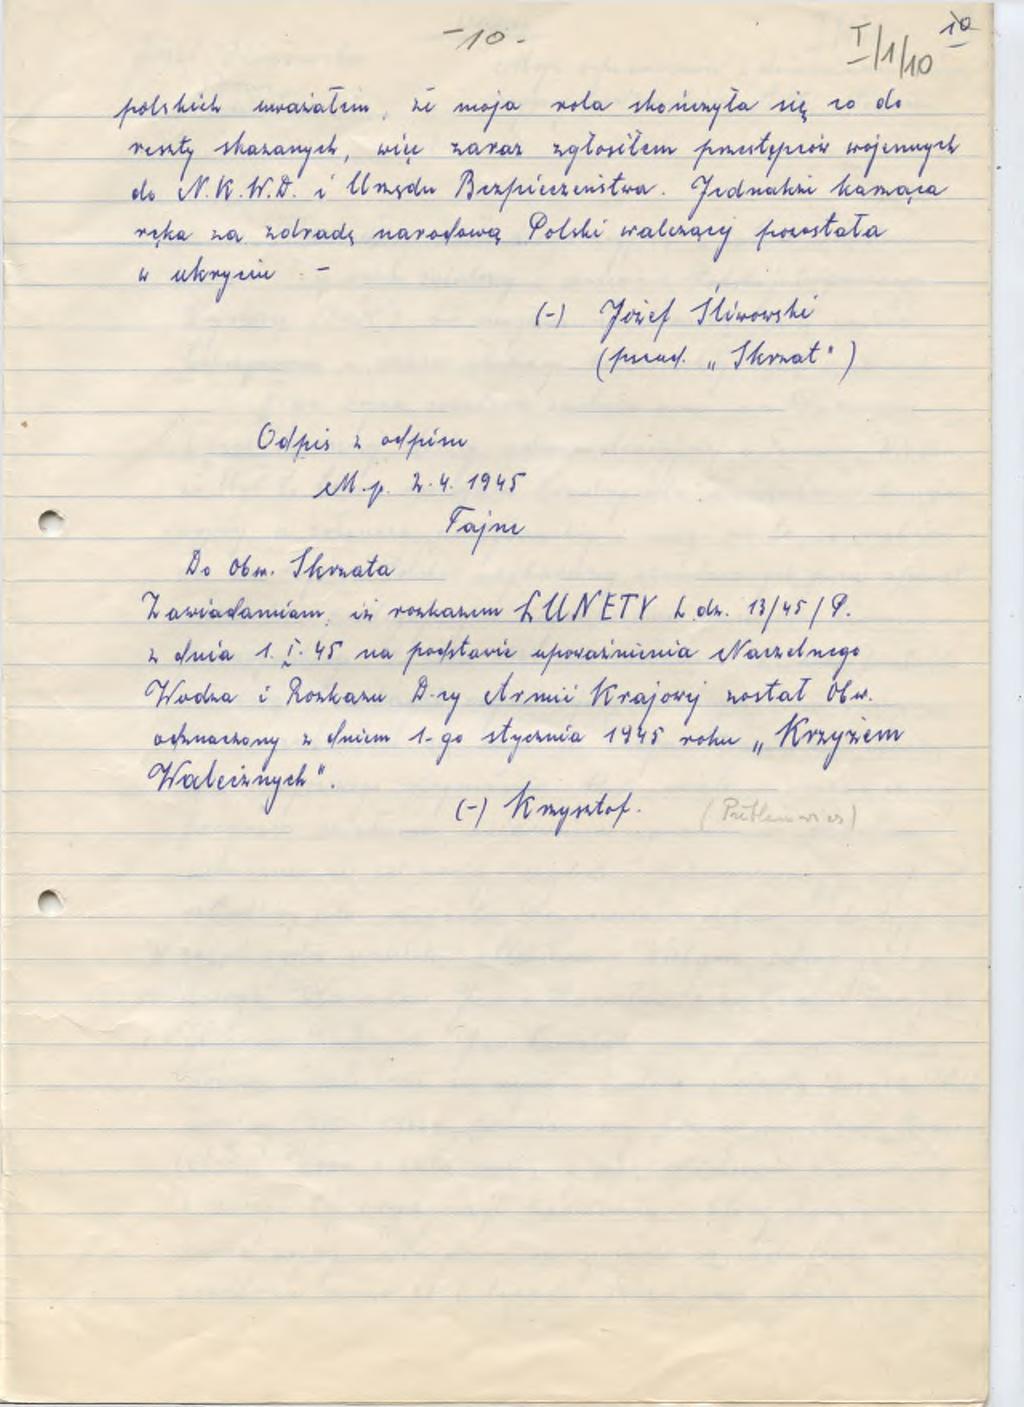 -10-
I/1/10
10
polskich uważałem, że moja rola skończyła się co do
reszty skazanych, więc zaraz zgłosiłem przestępców wojennych
do N.K.W.D. i Urzędu Bezpieczeństwa. Jednakże karząca
ręka za zdradę narodową Polski walczącej pozostała
w ukryciu. -
(-) Józef Śliwowski
(pseud. „Skrzat")
Odpis z odpisu
M.p. 2.4.1945
Tajne
Do Obw. Skrzata
Zawiadamiam, iż rozkazem LUNETY L.dz. 13/45/P.
z dnia 1.I.45 na podstawie upoważnienia Naczelnego
Wodza i Rozkazu D-cy Armii Krajowej został Obw.
odznaczony z dniem 1-go stycznia 1945 roku „Krzyżem
Walecznych".
(-) Krzysztof.